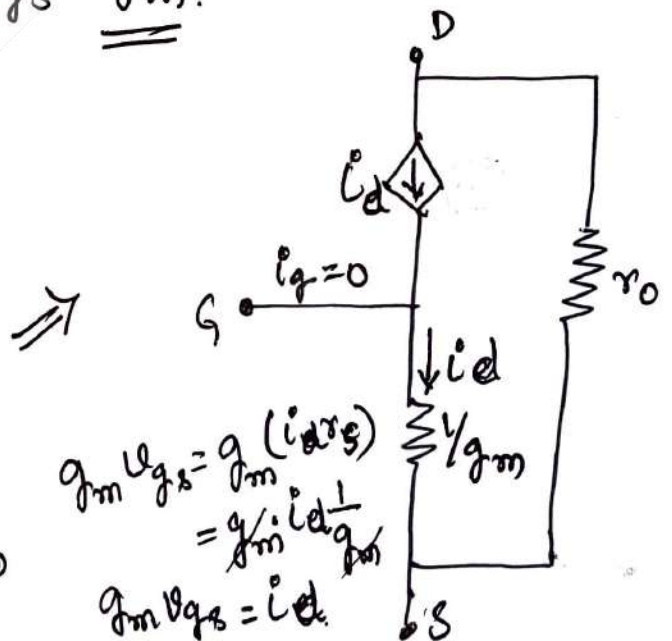 D
i_d
i_g = 0
G
r_o
i_d
1/g_m
g_m v_gs = g_m (i_d r_s)
= g_m · i_d 1/g_m
g_m v_gs = i_d.
S